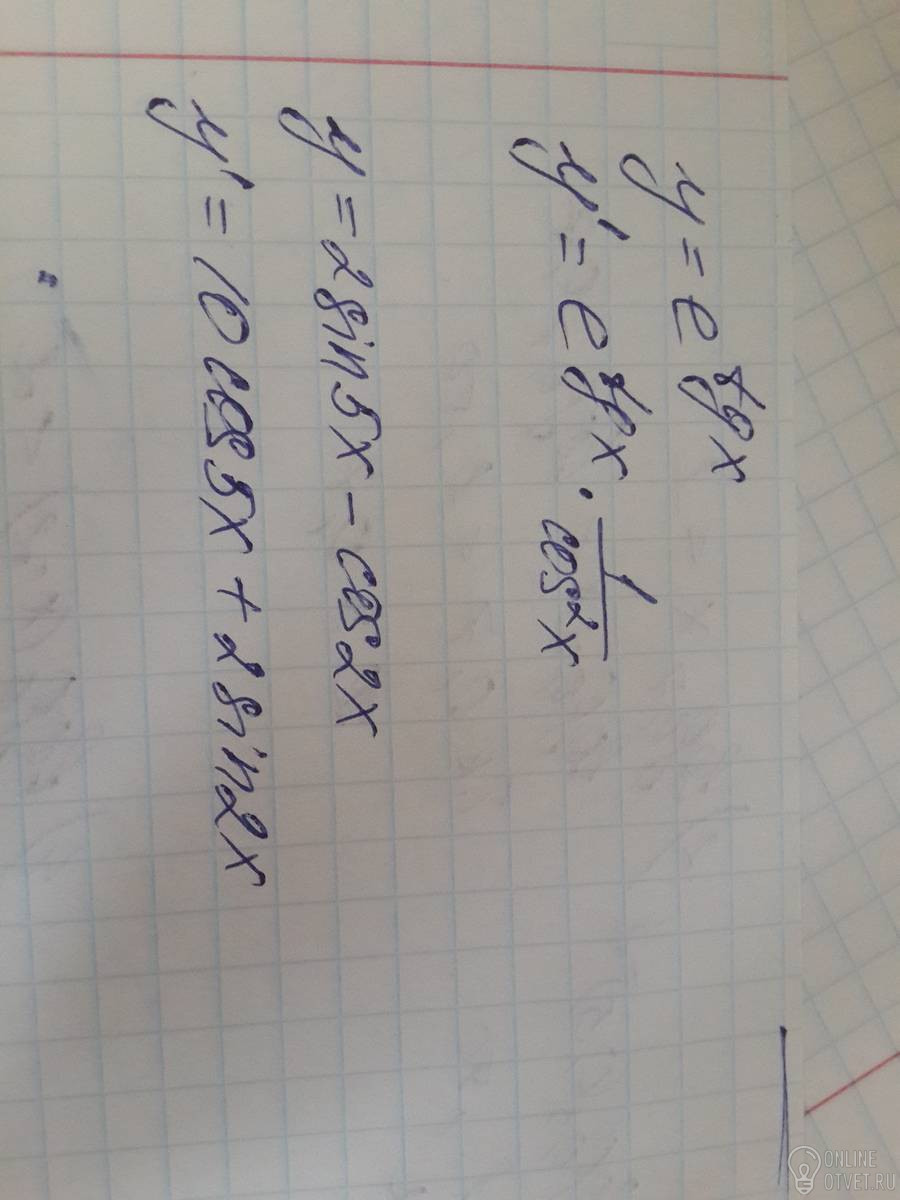 y = e^tg x
y' = e^tg x · 1/cos²x
y = 2 sin 5x - cos 2x
y' = 10 cos 5x + 2 sin 2x
ONLINE
OTVET.RU